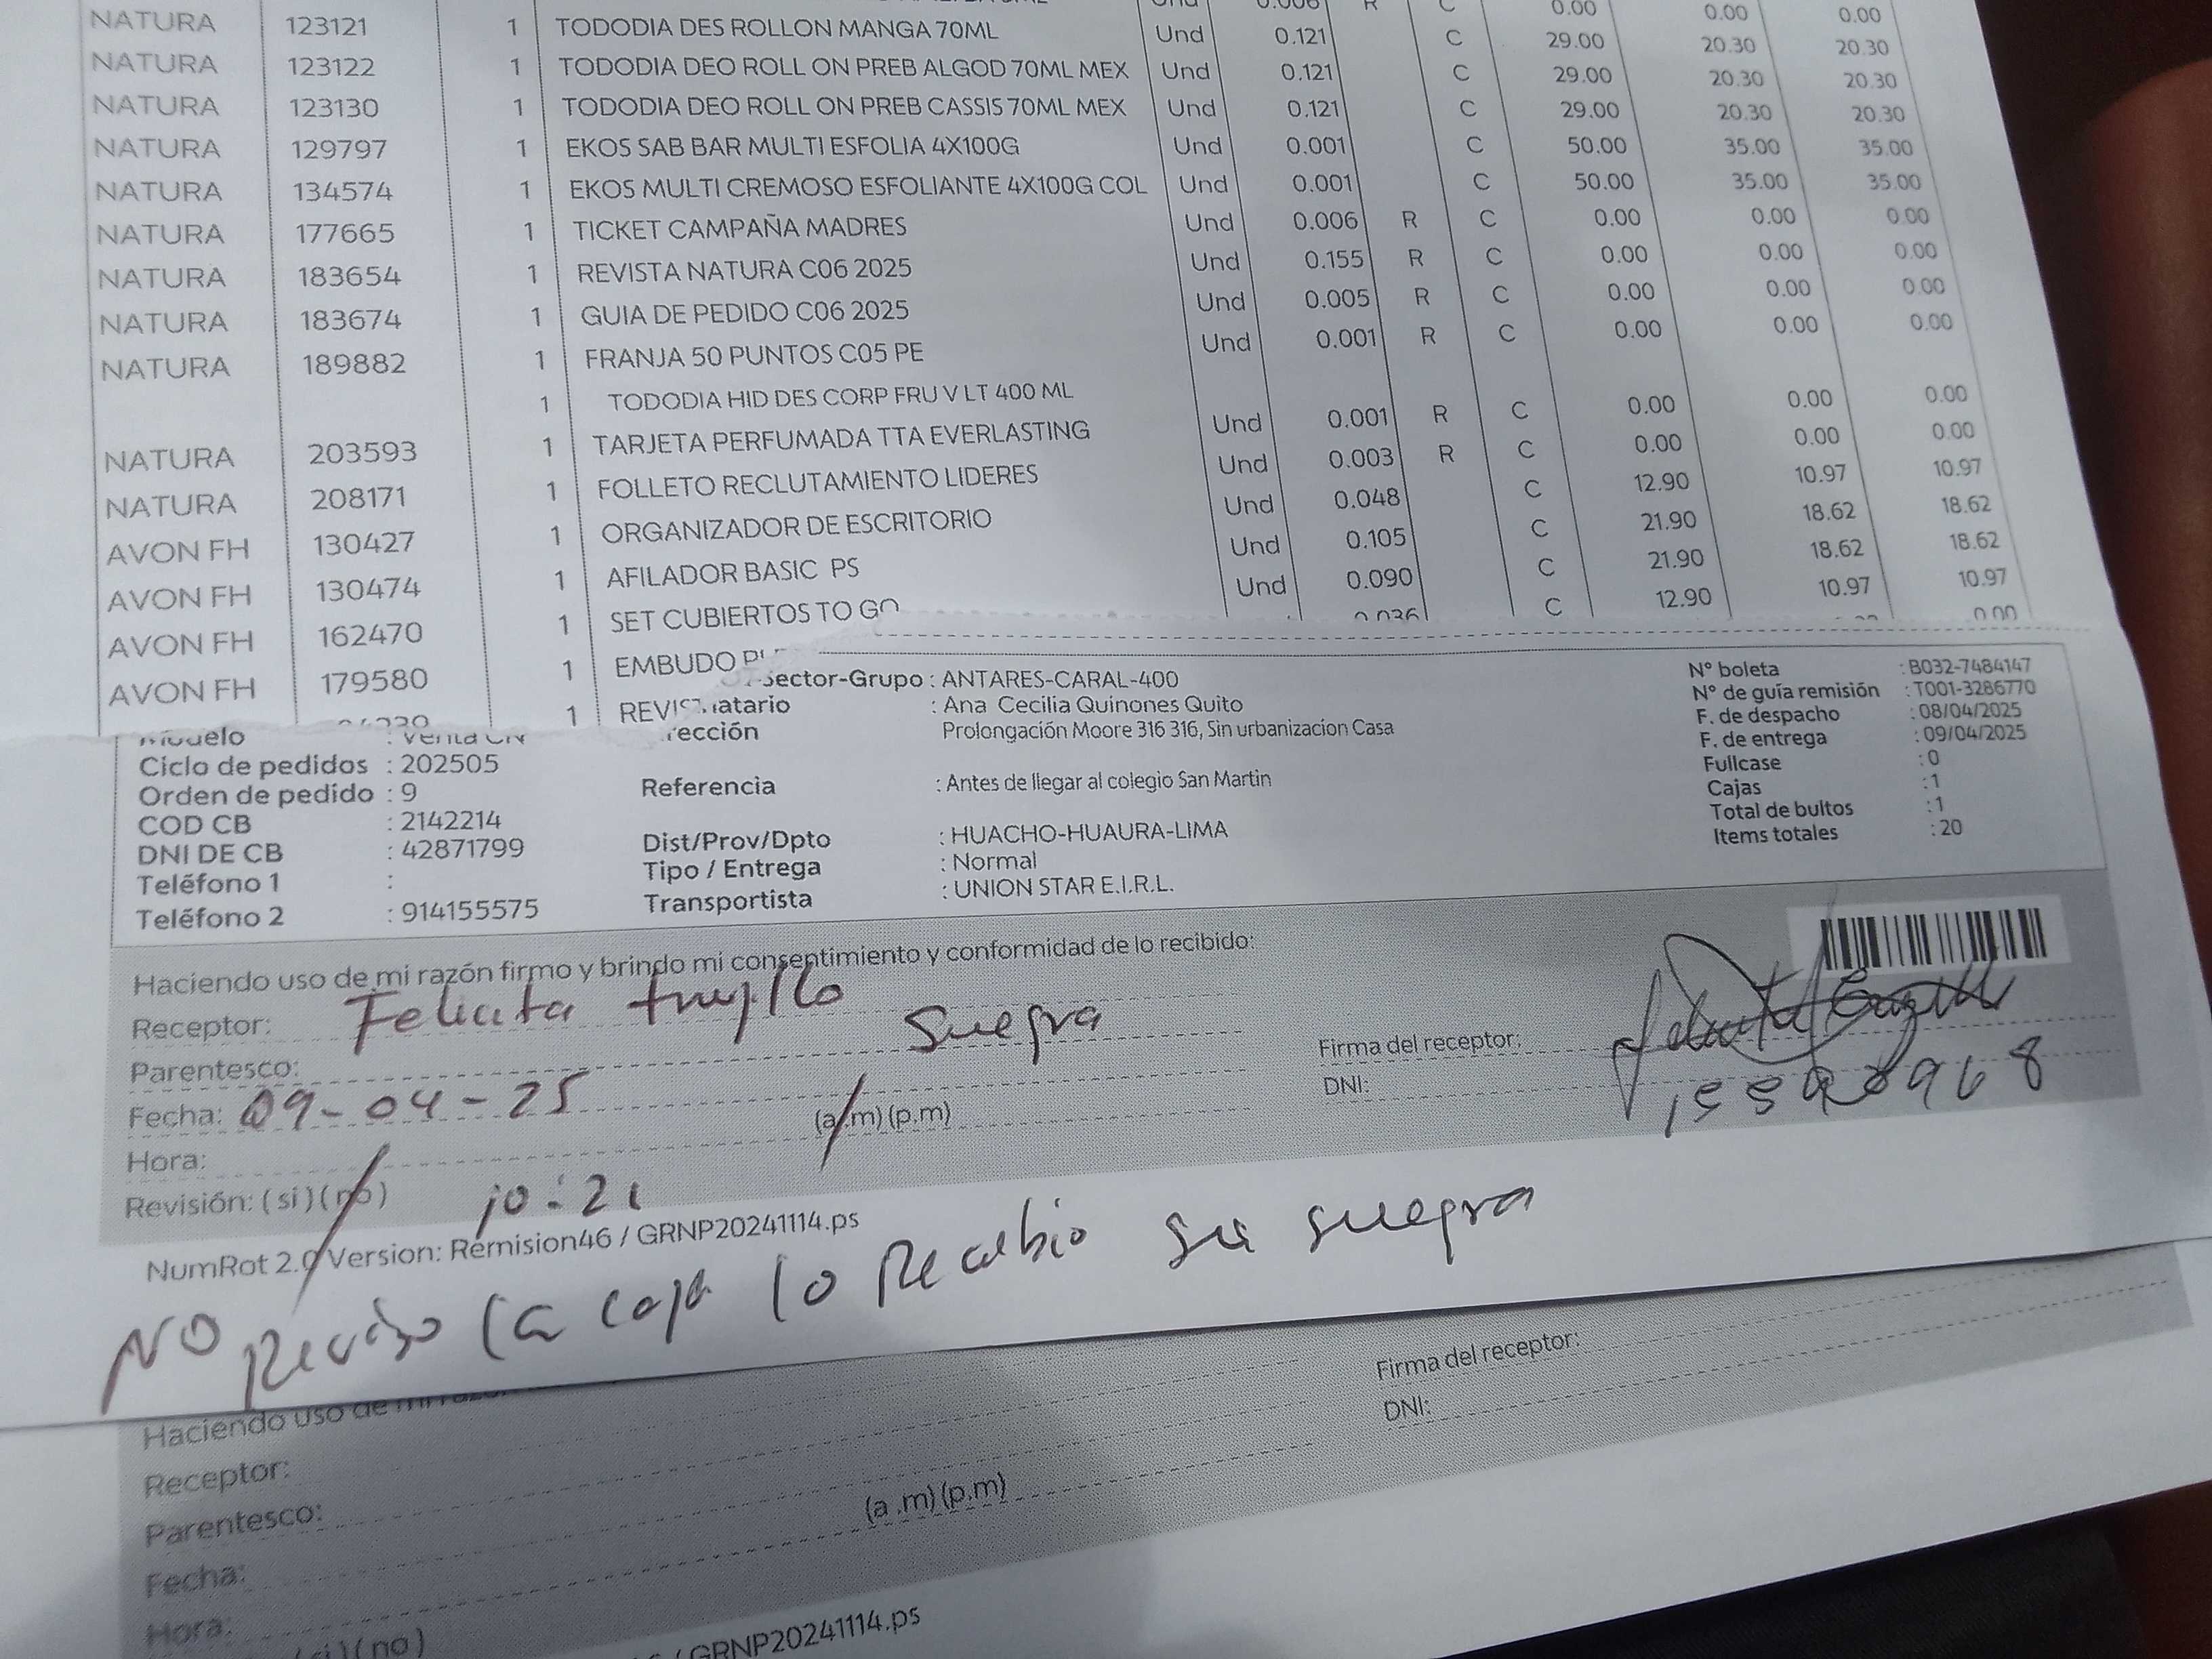 0.006 R C 0.00 0.00 0.00
NATURA 123121 1 TODODIA DES ROLLON MANGA 70ML Und 0.121 C 29.00 20.30 20.30
NATURA 123122 1 TODODIA DEO ROLL ON PREB ALGOD 70ML MEX Und 0.121 C 29.00 20.30 20.30
NATURA 123130 1 TODODIA DEO ROLL ON PREB CASSIS 70ML MEX Und 0.121 C 29.00 20.30 20.30
NATURA 129797 1 EKOS SAB BAR MULTI ESFOLIA 4X100G Und 0.001 C 50.00 35.00 35.00
NATURA 134574 1 EKOS MULTI CREMOSO ESFOLIANTE 4X100G COL Und 0.001 C 50.00 35.00 35.00
NATURA 177665 1 TICKET CAMPAÑA MADRES Und 0.006 R C 0.00 0.00 0.00
NATURA 183654 1 REVISTA NATURA C06 2025 Und 0.155 R C 0.00 0.00 0.00
NATURA 183674 1 GUIA DE PEDIDO C06 2025 Und 0.005 R C 0.00 0.00 0.00
NATURA 189882 1 FRANJA 50 PUNTOS C05 PE Und 0.001 R C 0.00 0.00 0.00
1 TODODIA HID DES CORP FRU V LT 400 ML
NATURA 203593 1 TARJETA PERFUMADA TTA EVERLASTING Und 0.001 R C 0.00 0.00 0.00
NATURA 208171 1 FOLLETO RECLUTAMIENTO LIDERES Und 0.003 R C 0.00 0.00 0.00
AVON FH 130427 1 ORGANIZADOR DE ESCRITORIO Und 0.048 C 12.90 10.97 10.97
AVON FH 130474 1 AFILADOR BASIC PS Und 0.105 C 21.90 18.62 18.62
AVON FH 162470 1 SET CUBIERTOS TO GO Und 0.090 C 21.90 18.62 18.62
AVON FH 179580 1 EMBUDO 0.036 C 12.90 10.97 10.97
1 REVIS 0.00
Modelo : Venta CN
Ciclo de pedidos : 202505
Orden de pedido : 9
COD CB : 2142214
DNI DE CB : 42871799
Teléfono 1 :
Teléfono 2 : 914155575
Sector-Grupo : ANTARES-CARAL-400
natario : Ana Cecilia Quinones Quito
rección Prolongación Moore 316 316, Sin urbanizacion Casa
Referencia : Antes de llegar al colegio San Martin
Dist/Prov/Dpto : HUACHO-HUAURA-LIMA
Tipo / Entrega : Normal
Transportista : UNION STAR E.I.R.L.
N° boleta : B032-7484147
N° de guía remisión : T001-3286770
F. de despacho : 08/04/2025
F. de entrega : 09/04/2025
Fullcase : 0
Cajas : 1
Total de bultos : 1
Items totales : 20
Haciendo uso de mi razón firmo y brindo mi consentimiento y conformidad de lo recibido:
Receptor: Felicita trujillo
Parentesco: Suegra
Fecha: 09-04-25 (a.m) (p.m)
Hora: 10:21
Revisión: (si) (no)
Firma del receptor:
DNI:
NumRot 2.0 Version: Remision46 / GRNP20241114.ps
NO Reviso la caja lo Recibio su suegra
Haciendo uso de mi
Receptor:
Parentesco:
Fecha: (a.m) (p.m)
Hora:
(no)
Firma del receptor:
DNI:
/ GRNP20241114.ps